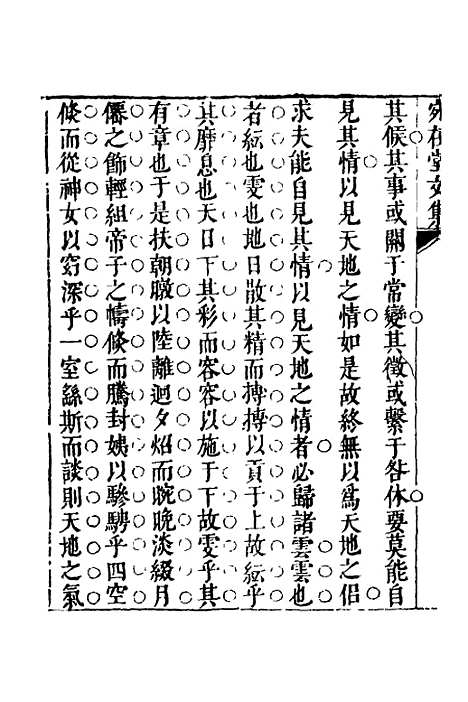 宛在堂文集
其候其事或關于常變其徵或繫于咎休要莫能自
見其情以見天地之情如是故終無以爲天地之侶
求夫能自見其情以見天地之情者必歸諸雲雲也
者紜也雯也地日散其精而摶摶以貢于上故紜乎
其靡息也天日下其彩而容容以施于下故雯乎其
有章也于是扶朝暾以陸離迴夕炤而晼晚淡綴月
僊之飾輕組帝子之幬倏而騰封姨以驂騁乎四空
倏而從神女以窈深乎一室繇斯而談則天地之氣